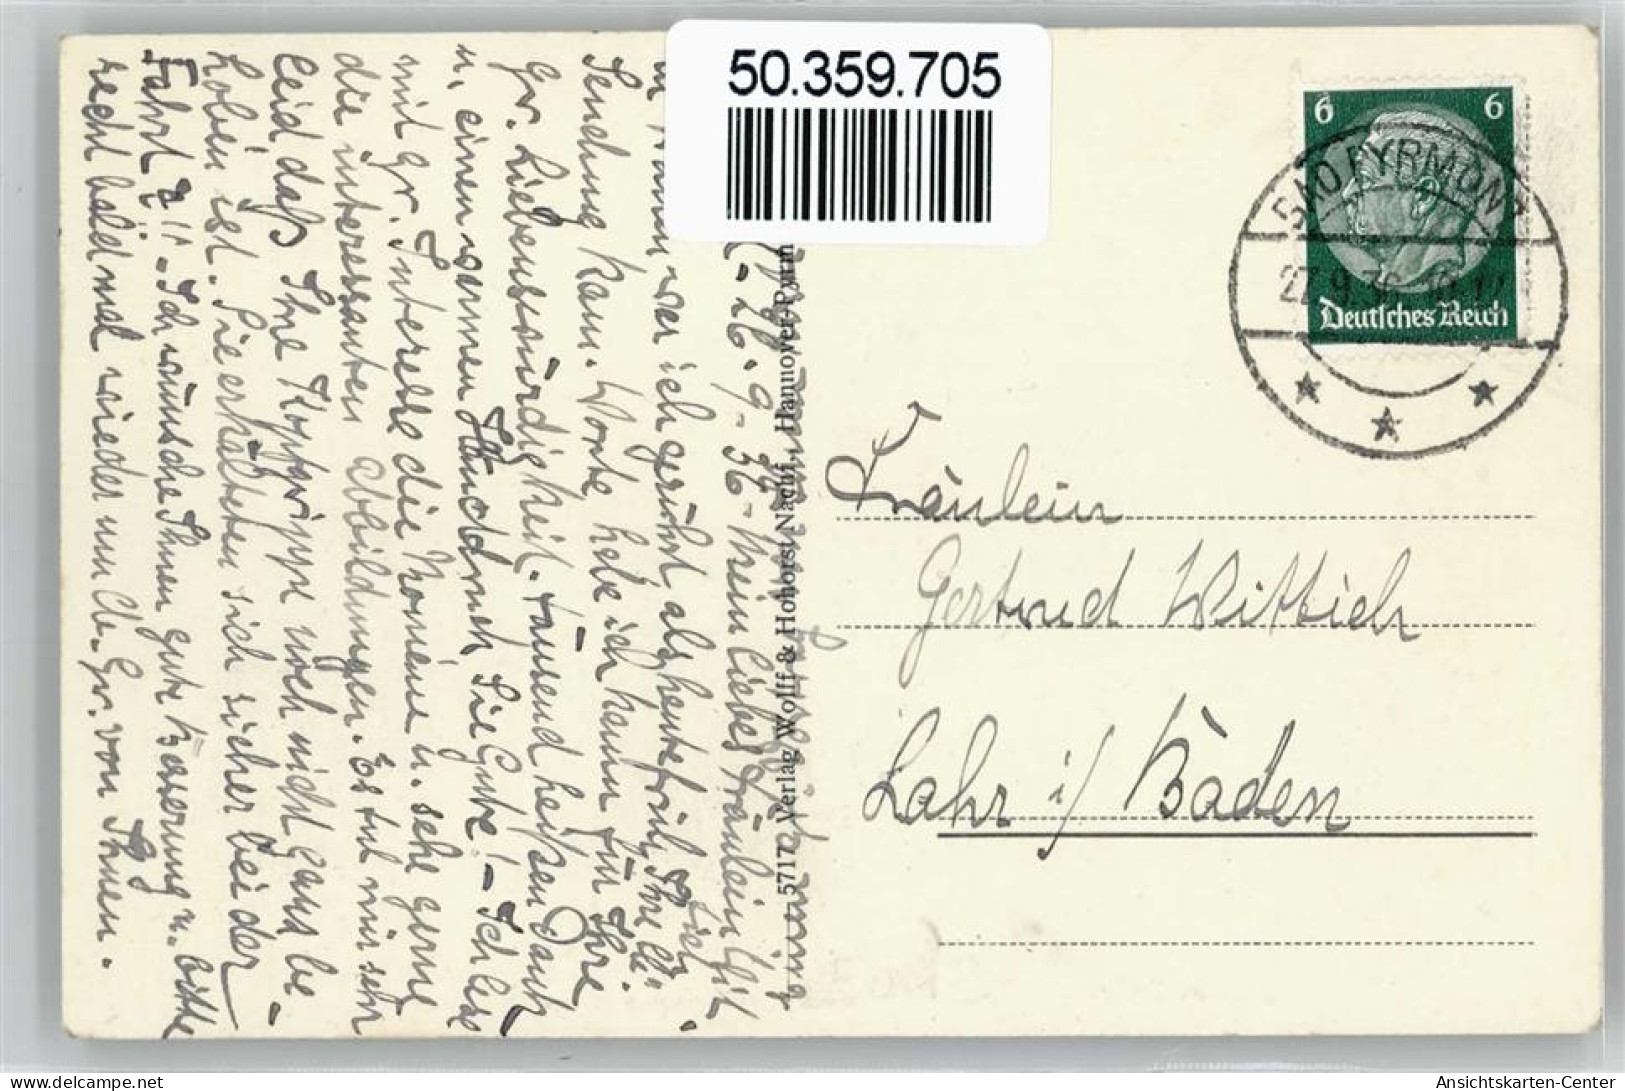 50.359.705
6 6
BAD PYRMONT
27.9.36
Deutsches Reich
Fräulein
Gertrud Wittich
Lahr i/ Baden
5717 Verlag Wolff & Hohorst Nachf., Hannover-Pyrm
26.9.36 - Mein liebes Fräulein
war ich gerührt als heute früh Ihre
Sendung kam. Worte habe ich kaum für Ihre
gr. Liebenswürdigkeit. Tausend heißen Dank
u. einen warmen Händdruck Sie Gute! - Ich lese
mit gr. Interesse die u. sehe gerne
die interessanten Abbildungen. Es tut mir sehr
leid daß Ihre Kopfgrippe noch nicht ganz be-
hoben ist. Sie erkälteten sich sicher bei der
Fahrt?!! - Ich wünsche Ihnen gute Besserung u. bitte
recht bald mal wieder um Gr. von Ihnen.
Ansichtskarten-Center